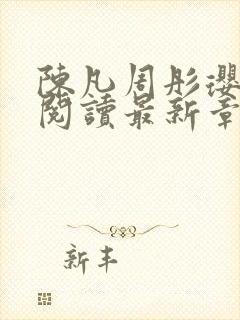 陳凡周彤瓔
閱讀最新章
新丰